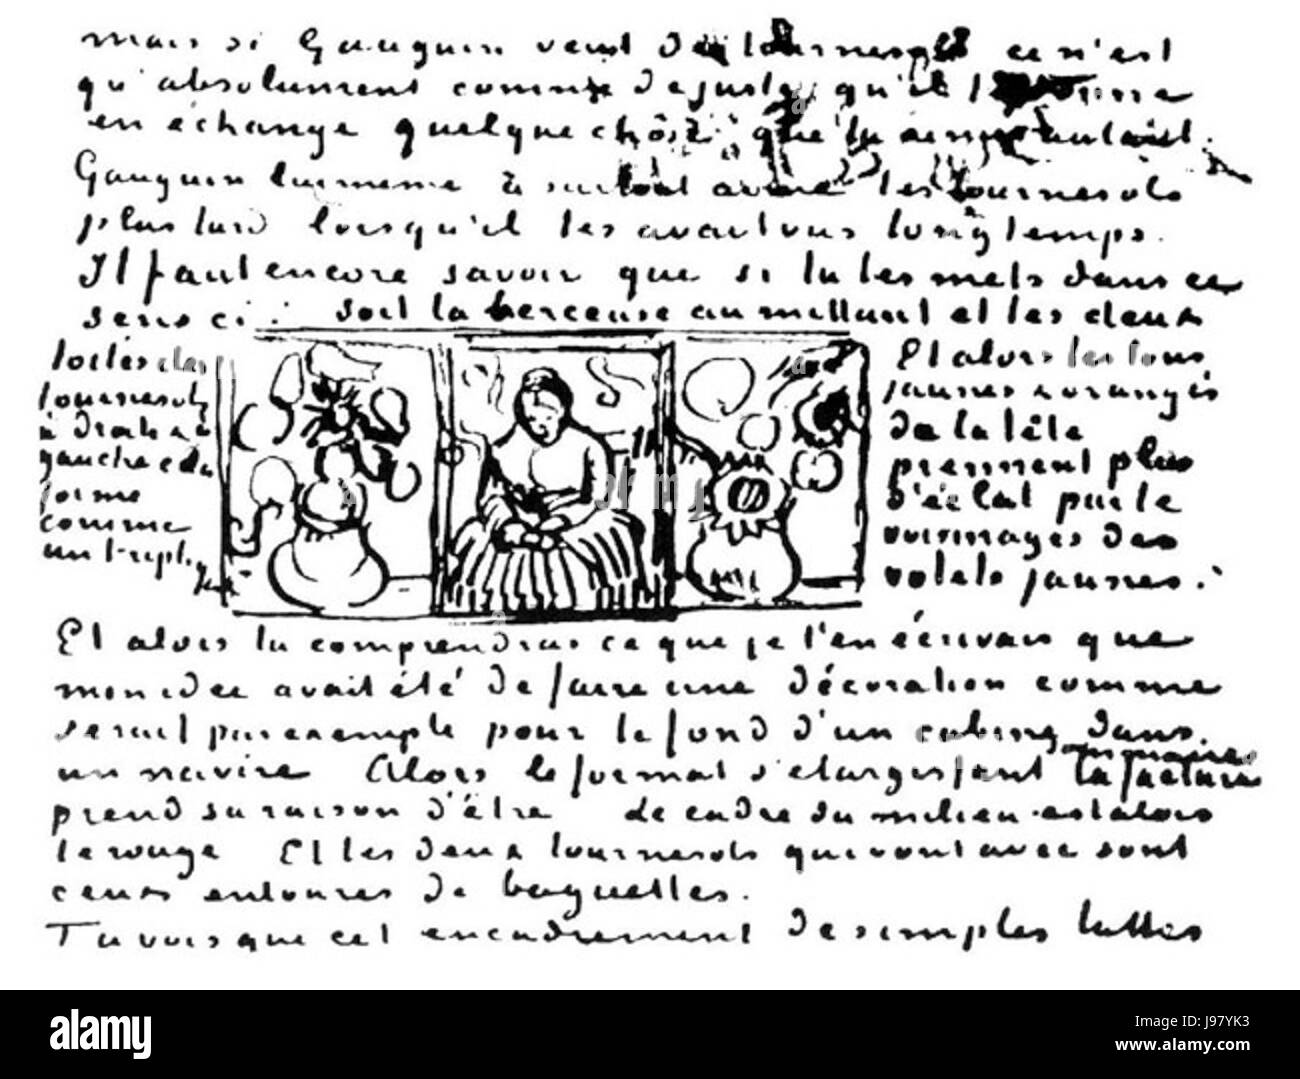 mais si Gauguin veut des tournesols ce n'est
qu'absolument comme de juste qu'il te donne
en échange quelque chose que tu aimes autant.
Gauguin lui meme a surtout aimé les tournesols
plus tard lorsqu'il les avait vus longtemps.
Il faut encore savoir que si tu les mets dans ce
sens ci: soit la berceuse au millant et les deux
toiles des
tournesols
à droite et à
gauche cela
forme
comme
un triptyque
Et alors les tons
jaunes & orangés
de la tête
prennent plus
d'éclat par le
voisinages des
volets jaunes.
Et alors tu comprendras ce que je t'en écrivais que
mon idee avait été de faire une décoration comme
serait par exemple pour le fond d'un cabine dans
un navire Alors le format s'élargissant la facture
sommaire
prend sa raison d'être Le cadre du milieu est alors
le rouge Et les deux tournesols qui vont avec sont
ceux entourés de baguettes.
Tu vois que cet encadrement de simples lattes
alamy
alamy
Image ID: J97YK3
www.alamy.com